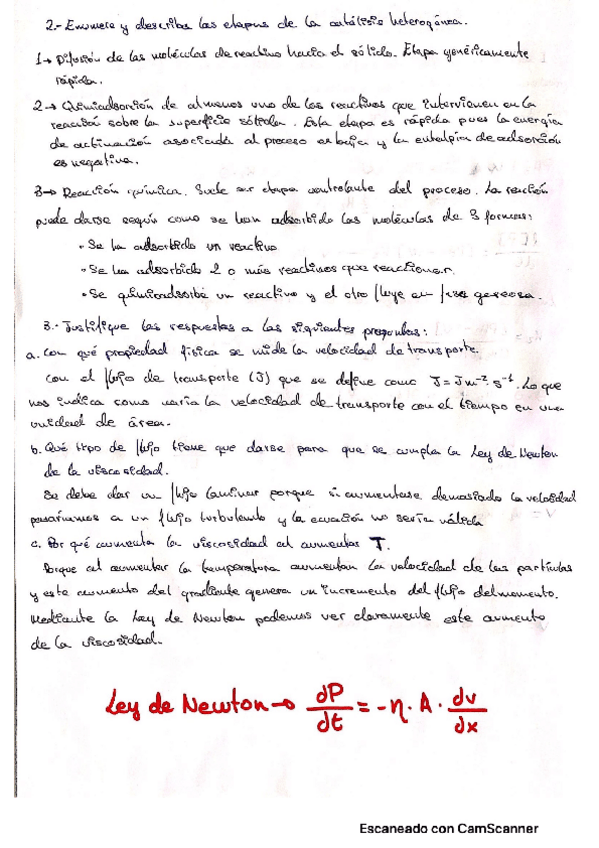 2.- Enumere y describa las etapas de la catálisis heterogénea.
1→ Difusión de las moléculas de reactivo hacia el sólido. Etapa genéricamente
rápida.
2→ Quimiadsorción de al menos uno de los reactivos que intervienen en la
reacción sobre la superficie sólida. Esta etapa es rápida pues la energía
de activación asociada al proceso es baja y la entalpia de adsorción
es negativa.
3→ Reacción química. Suele ser etapa controlante del proceso. La reacción
puede darse según como se han adsorbido las moléculas de 3 formas:
• Se ha adsorbido un reactivo
• Se ha adsorbido 2 o más reactivos que reaccionan.
• Se quimioadsorbe un reactivo y el otro fluye en fase gaseosa.
3.- Justifique las respuestas a las siguientes preguntas:
a. Con qué propiedad física se mide la velocidad de transporte.
Con el flujo de transporte (J) que se define como J = J m⁻² s⁻¹. Lo que
nos indica como varía la velocidad de transporte con el tiempo en una
unidad de área.
b. Qué tipo de flujo tiene que darse para que se cumpla la Ley de Newton
de la viscosidad.
Se debe dar un flujo laminar porque si aumentase demasiado la velocidad
pasaríamos a un flujo turbulento y la ecuación no sería válida
c. Por qué aumenta la viscosidad al aumentar T.
Porque al aumentar la temperatura aumentan la velocidad de las partículas
y este aumento del gradiente genera un incremento del flujo del momento.
Mediante la Ley de Newton podemos ver claramente este aumento
de la viscosidad.
Ley de Newton → dP/dt = -η · A · dv/dx
Escaneado con CamScanner